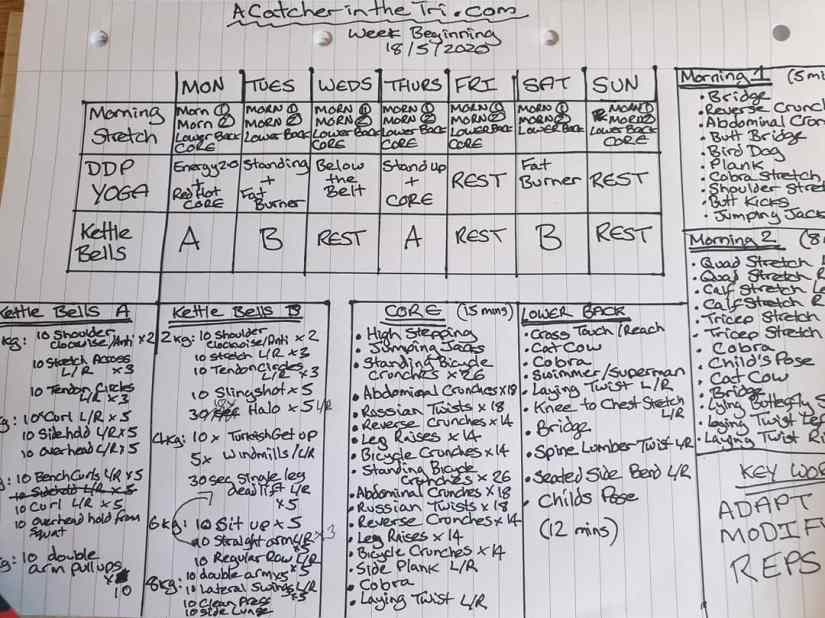 A Catcher in the Tri.com
Week Beginning
18/5/2020
MON TUES WEDS THURS FRI SAT SUN
Morning Stretch
Morn ① Morn ② Lower Back CORE
MORN ① MORN ② Lower Back
MORN ① MORN ② Lower Back CORE
MORN ① MORN ② Lower Back CORE
MORN ① MORN ② LOWER BACK CORE
MORN ① MORN ② LOWER BACK
MORN ① MORN ② Lower Back CORE
DDP YOGA
Energy 2.0 + Red Hot CORE
Standing + Fat Burner
Below the Belt
Stand up + CORE
REST
Fat Burner
REST
Kettle Bells
A B REST A REST B REST
Morning 1 (5 mi
• Bridge
• Reverse Crunch
• Abdominal Crun
• Butt Bridge
• Bird Dog
• Plank
• Cobra Stretch
• Shoulder Stre
• Butt Kicks
• Jumping Jack
Morning 2 (8
• Quad Stretch L
• Quad Stretch R
• Calf Stretch Le
• Calf Stretch R
• Tricep Stretch
• Tricep Stretch
• Cobra
• Child's Pose
• Cat Cow
• Bridge
• Lying Butterfly S
• Laying Twist Lef
• Laying Twist Ri
KEY WOR
ADAPT
MODIF
REPS
Kettle Bells A
kg: 10 Shoulder
Clockwise/Anti x2
10 Stretch Across
L/R x3
10 Tendon Circles
L/R x3
g: 10 Curl L/R x5
10 Side hold L/R x5
10 overhead L/R x5
g: 10 Bench Curls L/R x5
10 Side hold L/R x5
10 Curl L/R x5
10 overhead hold from
squat
g: 10 double
arm pull ups
x
10
Kettle Bells B
2kg: 10 Shoulder
Clockwise/Anti x2
10 Stretch L/R x3
10 Tendon Circles
L/R x3
10 Slingshot x5
Halo x5 L/R
4kg: 10 x Turkish Get up
5x Windmills L/R
30 sec Single leg
deadlift L/R
x5
6kg: 10 Sit up x5
10 Straight arm L/R x3
x5
10 Regular Row L/R
10 double arm x5 x5
8kg: 10 Lateral Swings L/R
x5
10 Clean Press
10 Side Lunge
CORE (15 mins)
• High Stepping
• Jumping Jacks
• Standing Bicycle
Crunches x26
• Abdominal Crunches x18
• Russian Twists x18
• Reverse Crunches x14
• Leg Raises x14
• Bicycle Crunches x14
• Standing Bicycle
Crunches x26
• Abdominal Crunches x18
• Russian Twists x18
• Reverse Crunches x14
• Leg Raises x14
• Bicycle Crunches x14
• Side Plank L/R
• Cobra
• Laying Twist L/R
LOWER BACK
• Cross Touch/Reach
• Cat Cow
• Cobra
• Swimmer/Superman
• Laying Twist L/R
• Knee to Chest Stretch
L/R
• Bridge
• Spine Lumber Twist L/R
• Seated Side Bend L/R
• Childs Pose
(12 mins)